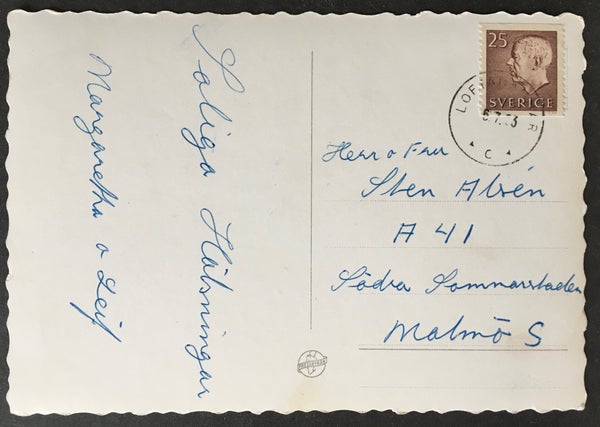 Soliga Hälsningar
Margaretha o Leif
25
SVERIGE
C
Herr o Fru
Sten Alvén
A 41
Södra Sommarstaden
Malmö S